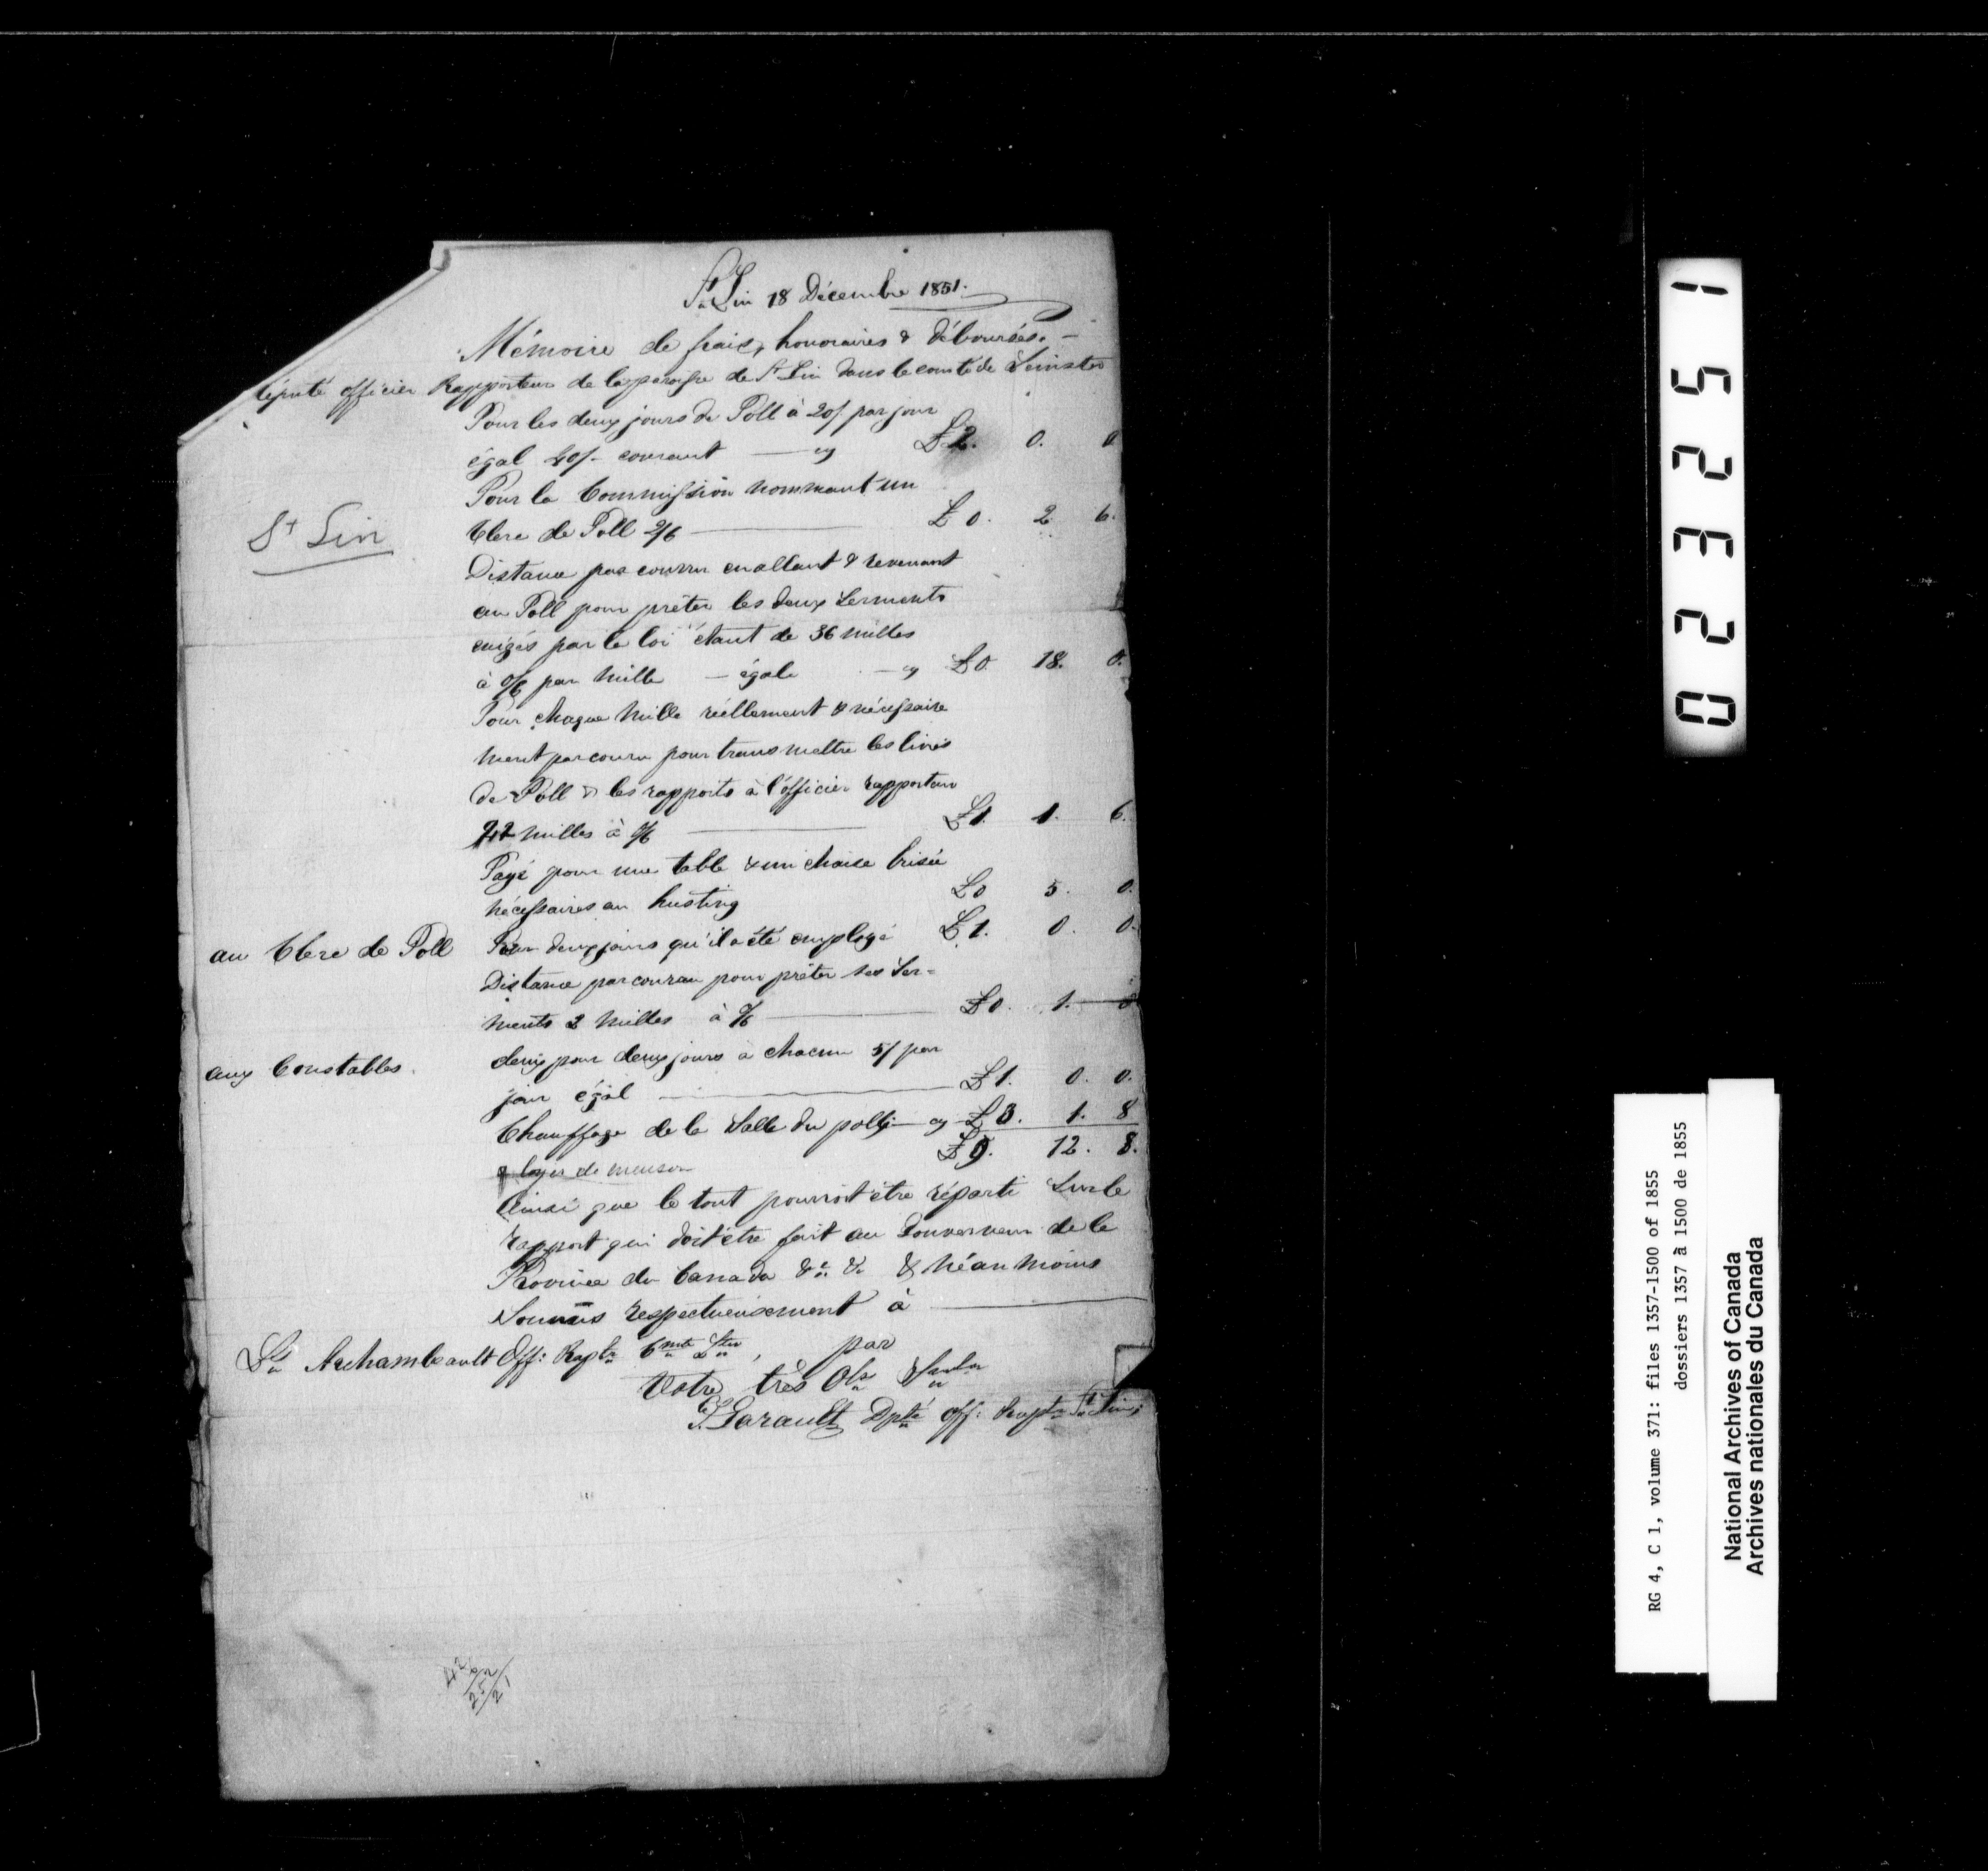 St Lin 18 Décembre 1851.
Mémoire de frais, honoraires & déboursés. —
député officier Rapporteur de la paroisse de St Lin dans le comté de Leinster
Pour les deux jours de Poll à 20/ par jour
égal 40/- courant — cy £2. 0. 0
Pour la Commission nommant un
Clerc de Poll 2/6 — £0. 2. 6.
St Lin
Distance parcourru en allant & revenant
au Poll pour prêter les deux serments
exigés par la loi étant de 36 milles
à 0/6 par mille — égale — cy £0. 18. 0.
Pour chaque mille réellement & nécessaire
ment parcouru pour transmettre les livres
de Poll & les rapports à l'officier rapporteur
milles à 0/6 — £1. 1. 6.
Payé pour une table & une chaise brisée
nécessaires au husting £0 5. 0.
au Clerc de Poll Pour deux jours qu'il a été employé £1. 0. 0.
Distance parcourru pour prêter ses ser=
ments 2 milles à 0/6 — £0. 1. 0
aux Constables. deux pour deux jours à chacun 5/ par
jour égal — £1. 0. 0.
Chauffage de la salle du poll — cy £3. 1. 8
& loyer de maison £9. 12. 8.
Ainsi que le tout pourroit être réparti sur le
rapport qui doit être fait au Gouverneur de la
Province du Canada &c &c & Néanmoins
Soumis respectueusement à —
Archambeault Off: Rapt , par
Votre très
Garault Dpté Off: Rapt St Lin
42
6
252
21
023251
RG 4, C 1, volume 371: files 1357-1500 of 1855
dossiers 1357 à 1500 de 1855
National Archives of Canada
Archives nationales du Canada